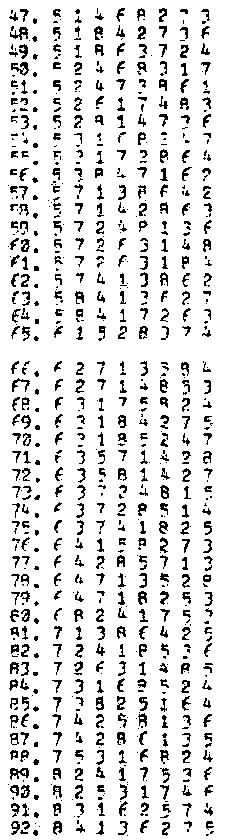 47. 5 1 4 6 8 2 7 3
48. 5 1 8 4 2 7 3 6
49. 5 1 8 6 3 7 2 4
50. 5 2 4 6 8 3 1 7
51. 5 2 4 7 3 8 6 1
52. 5 2 6 1 7 4 8 3
53. 5 2 8 1 4 7 3 6
54. 5 3 1 6 8 2 4 7
55. 5 3 1 7 2 8 6 4
56. 5 3 8 4 7 1 6 2
57. 5 7 1 3 8 6 4 2
58. 5 7 1 4 2 8 6 3
59. 5 7 2 4 8 1 3 6
60. 5 7 2 6 3 1 4 8
61. 5 7 2 6 3 1 8 4
62. 5 7 4 1 3 8 6 2
63. 5 8 4 1 3 6 2 7
64. 5 8 4 1 7 2 6 3
65. 6 1 5 2 8 3 7 4
66. 6 2 7 1 3 5 8 4
67. 6 2 7 1 4 8 5 3
68. 6 3 1 7 5 8 2 4
69. 6 3 1 8 4 2 7 5
70. 6 3 1 8 5 2 4 7
71. 6 3 5 7 1 4 2 8
72. 6 3 5 8 1 4 2 7
73. 6 3 7 2 4 8 1 5
74. 6 3 7 2 8 5 1 4
75. 6 3 7 4 1 8 2 5
76. 6 4 1 5 8 2 7 3
77. 6 4 2 8 5 7 1 3
78. 6 4 7 1 3 5 2 8
79. 6 4 7 1 8 2 5 3
80. 6 8 2 4 1 7 5 3
81. 7 1 3 8 6 4 2 5
82. 7 2 4 1 8 5 3 6
83. 7 2 6 3 1 4 8 5
84. 7 3 1 6 8 5 2 4
85. 7 3 8 2 5 1 6 4
86. 7 4 2 5 8 1 3 6
87. 7 4 2 8 6 1 3 5
88. 7 5 3 1 6 8 2 4
89. 8 2 4 1 7 5 3 6
90. 8 2 5 3 1 7 4 6
91. 8 3 1 6 2 5 7 4
92. 8 4 1 3 6 2 7 5